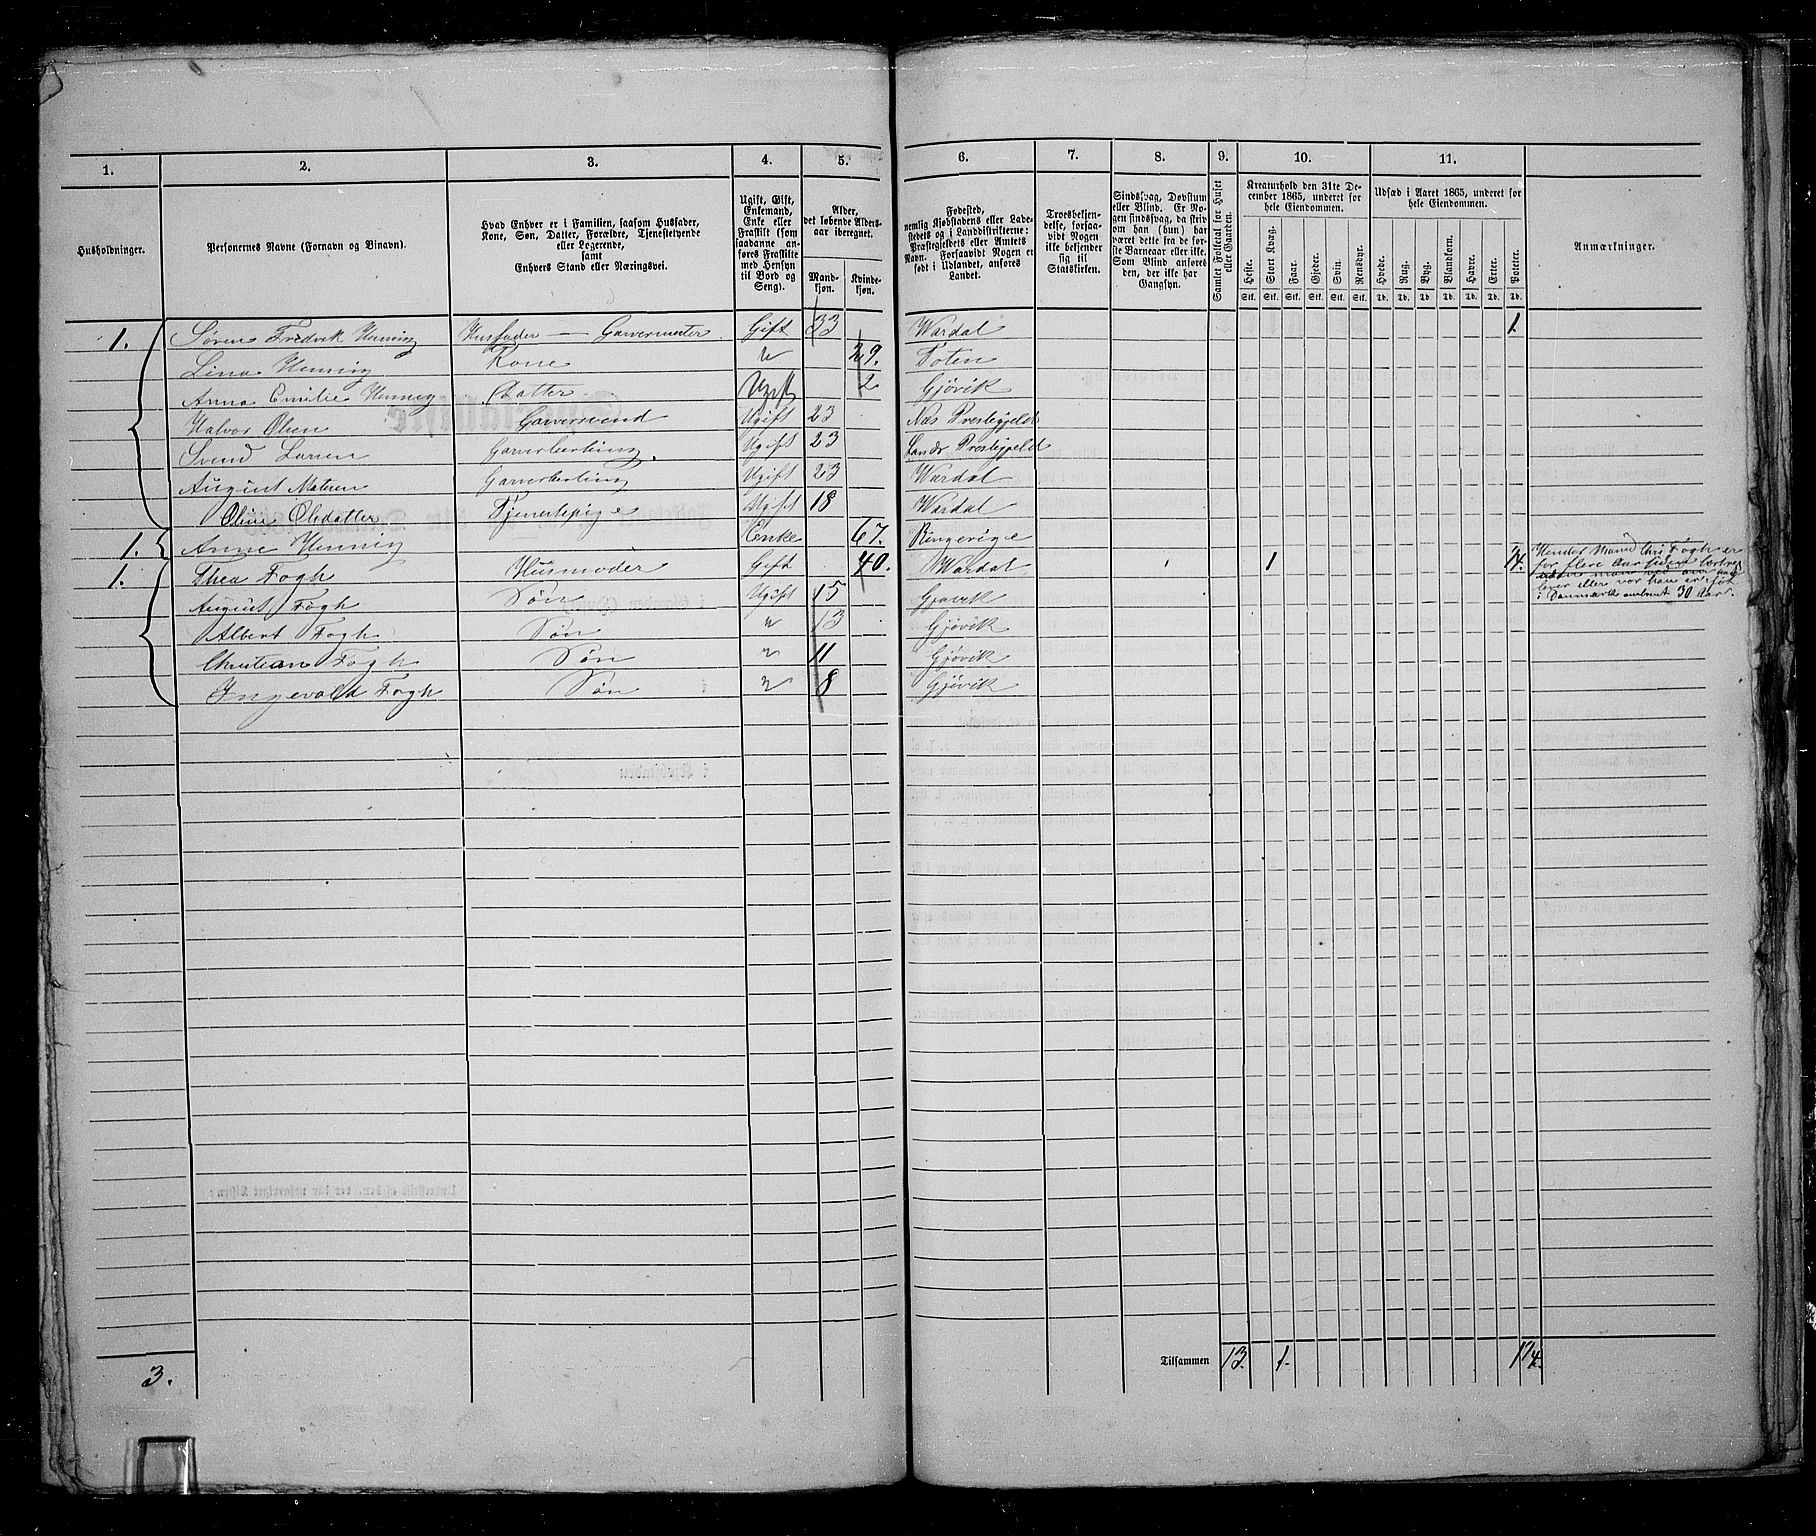 1. 2. 3. 4. 5. 6. 7. 8. 9. 10. 11.
Husholdninger.
Personernes Navne (Fornavn og Binavn).
Hvad Enhver er i Familien, saasom Husfader,
Kone, Søn, Datter, Forældre, Tjenestetyende
eller Logerende,
samt
Enhvers Stand eller Næringsvei.
Ugift, Gift,
Enkemand,
Enke eller
Fraskilt (som
saadanne an-
føres Fraskilte
med Hensyn
til Bord og
Seng).
Alder,
det løbende Alders-
aar iberegnet.
Mand-
kjøn.
Kvinde-
kjøn.
Fødested,
nemlig Kjøbstadens eller Lade-
stedets og i Landdistrikterne:
Præstegjeldets eller Amtets
Navn. Forsaavidt Nogen er
født i Udlandet, anføres
Landet.
Troesbekjen-
delse, forsaa-
vidt Nogen
ikke bekjender
sig til
Statskirken.
Sindssvag, Døvstum
eller Blind. Er No-
gen sindssvag, da skriv
om han (hun) har
været dette fra de før-
ste Barneaar eller ikke.
Som Blind anføres
den, der ikke har
Gangsyn.
Samlet Folketal for Huset
eller Gaarden.
Kreaturhold den 31te De-
cember 1865, underet for
hele Eiendommen.
Heste. Stort Kvæg. Faar. Gjeder. Svin. Rensdyr.
Stk. Stk. Stk. Stk. Stk. Stk.
Udsæd i Aaret 1865, underet for
hele Eiendommen.
Hvede. Rug. Byg. Blandkorn. Havre. Erter. Poteter.
Td. Td. Td. Td. Td. Td. Td.
Anmærkninger.
1. Søren Fredrik Henning Husfader — Garvermester Gift 33 Wardal 1
Lina Henning Kone " 29. Toten
Anna Emilie Henning Datter Ugift 2 Gjøvik
Halvor Olsen Garversvend Ugift 23 Næs Prestegjeld
Svend Larsen Garverlærling Ugift 23 Lands Prestegjeld
August Matesen Garverlærling Ugift 23 Wardal
Oline Olsdatter Tjenestepige Ugift 18 Wardal
1. Anne Henning Enke 67. Ringerige
1. Thea Fogh Husmoder Gift 40. Wardal 1 Hendes Mand Chr. Fogh er
August Fogh Søn Ugift 15 Gjøvik for flere Aar siden
Albert Fogh Søn " 13 Gjøvik i Danmark omtrent 30 Aar.
Christian Fogh Søn " 11 Gjøvik
Ingevald Fogh Søn " 8 Gjøvik
3.
Tilsammen 13. 1.